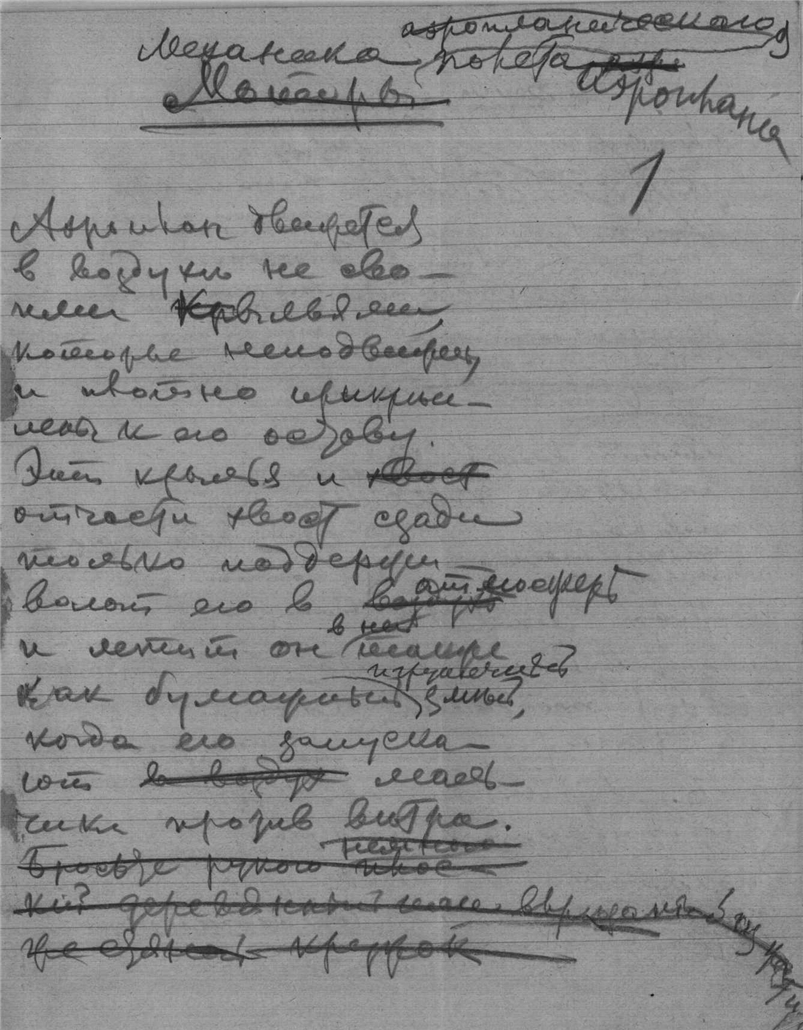 аэропланического
Механика полета аэро
Аэроплана
Моторы
1
Аэроплан движется
в воздухе не сво-
ими крыльями,
которые неподвижны,
и плотно прикреп-
лены к его остову.
Эти крылья и хвост
отчасти хвост сзади
только поддержи-
вают его в воздухе атмосфере
и летит он в ней также
как бумажный игрушечный змей,
когда его запуска-
ют в воздух маль-
чики против ветра.
Бросьте рукою плос-
кий деревянный или вырезанный из
кружок